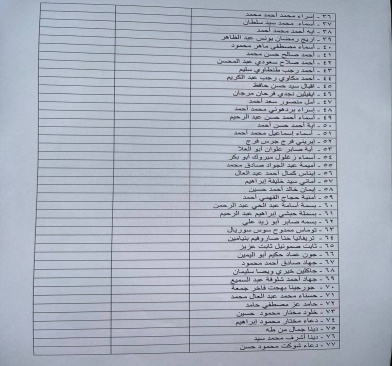 ٣٦ - إسراء محمد أحمد محمد
٣٧ - أسماء محمد سيد سلطان
٣٨ - آية أحمد محمد أحمد
٣٩ - أريج رمضان يونس عبد الظاهر
٤٠ - أسماء مصطفى ماهر محمود
٤١ - أحمد صالح حسن محمد
٤٢ - أحمد صلاح سعودي عبد المحسن
٤٣ - أحمد رجب طنطاوي سليم
٤٤ - أحمد مكاوي رجب عبد الكريم
٤٥ - إقبال سيد حسن حافظ
٤٦ - إيفيلين نجدي فرحان مرجان
٤٧ - أمل منصور سعد أحمد
٤٨ - إسراء بردهوني محمد أحمد
٤٩ - أسماء أحمد حسن عبد الرحيم
٥٠ - آية أحمد حسن أحمد
٥١ - أسماء إسماعيل محمد أحمد
٥٢ - إيريني فرج جرس فرج
٥٣ - آية صابر علوان أبو العلا
٥٤ - أسماء زغلول مبروك أبو بكر
٥٥ - أميمة عبد الجواد صادق محمد
٥٦ - إيناس كمال أحمد عبد العال
٥٧ - أماني سيد خليفة إبراهيم
٥٨ - إيمان خالد أحمد حسين
٥٩ - أمنية حجاج الفهمي أحمد
٦٠ - بسمة أسامة عبد الحي عبد الرحمن
٦١ - بسملة حبشي إبراهيم عبد الرحيم
٦٢ - بسمه صابر أبو زيد علي
٦٣ - توماس ممدوح سوس سوريال
٦٤ - تريفانيا حنا صاروفيم بنيامين
٦٥ - ثابت صموئيل ثابت عزيز
٦٦ - جون عماد حكيم أبو اليمين
٦٧ - جهاد صادق أحمد محمود
٦٨ - جاكلين خيري ويصا سليمان
٦٩ - جهاد أحمد شلوفة عبد السميع
٧٠ - جورجينا بهجت فاخر جمعة
٧١ - حسناء محمد عبد العال محمد
٧٢ - حامد عز مصطفى حامد
٧٣ - خلود مختار محمود حسين
٧٤ - دعاء مختار محمود إبراهيم
٧٥ - دينا جمال من طه
٧٦ - دينا أشرف محمد سيد
٧٧ - دعاء شوكت محمود حسن